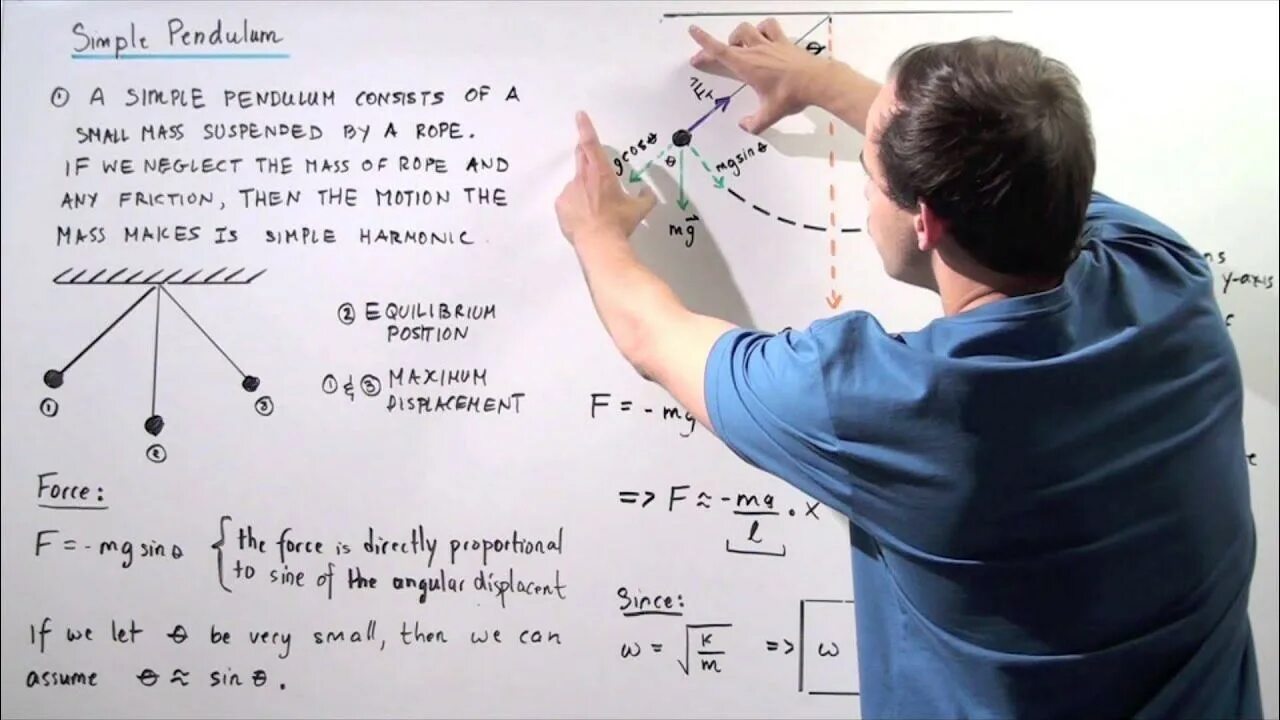 Simple Pendulum
① A SIMPLE PENDULUM CONSISTS OF A
SMALL MASS SUSPENDED BY A ROPE.
IF WE NEGLECT THE MASS OF ROPE AND
ANY FRICTION, THEN THE MOTION THE
MASS MAKES IS SIMPLE HARMONIC.
① ② ③
② EQUILIBRIUM
POSITION
① & ③ MAXIMUM
DISPLACEMENT
Force:
F = -mg sin θ
the force is directly proportional
to sine of the angular displacent
If we let θ be very small, then we can
assume θ ≈ sin θ.
θ
gcosθ
θ
mgsinθ
mg
y-axis
F = -mg
=> F ≈ -mg/l • x
Since:
ω = √(K/m) => ω